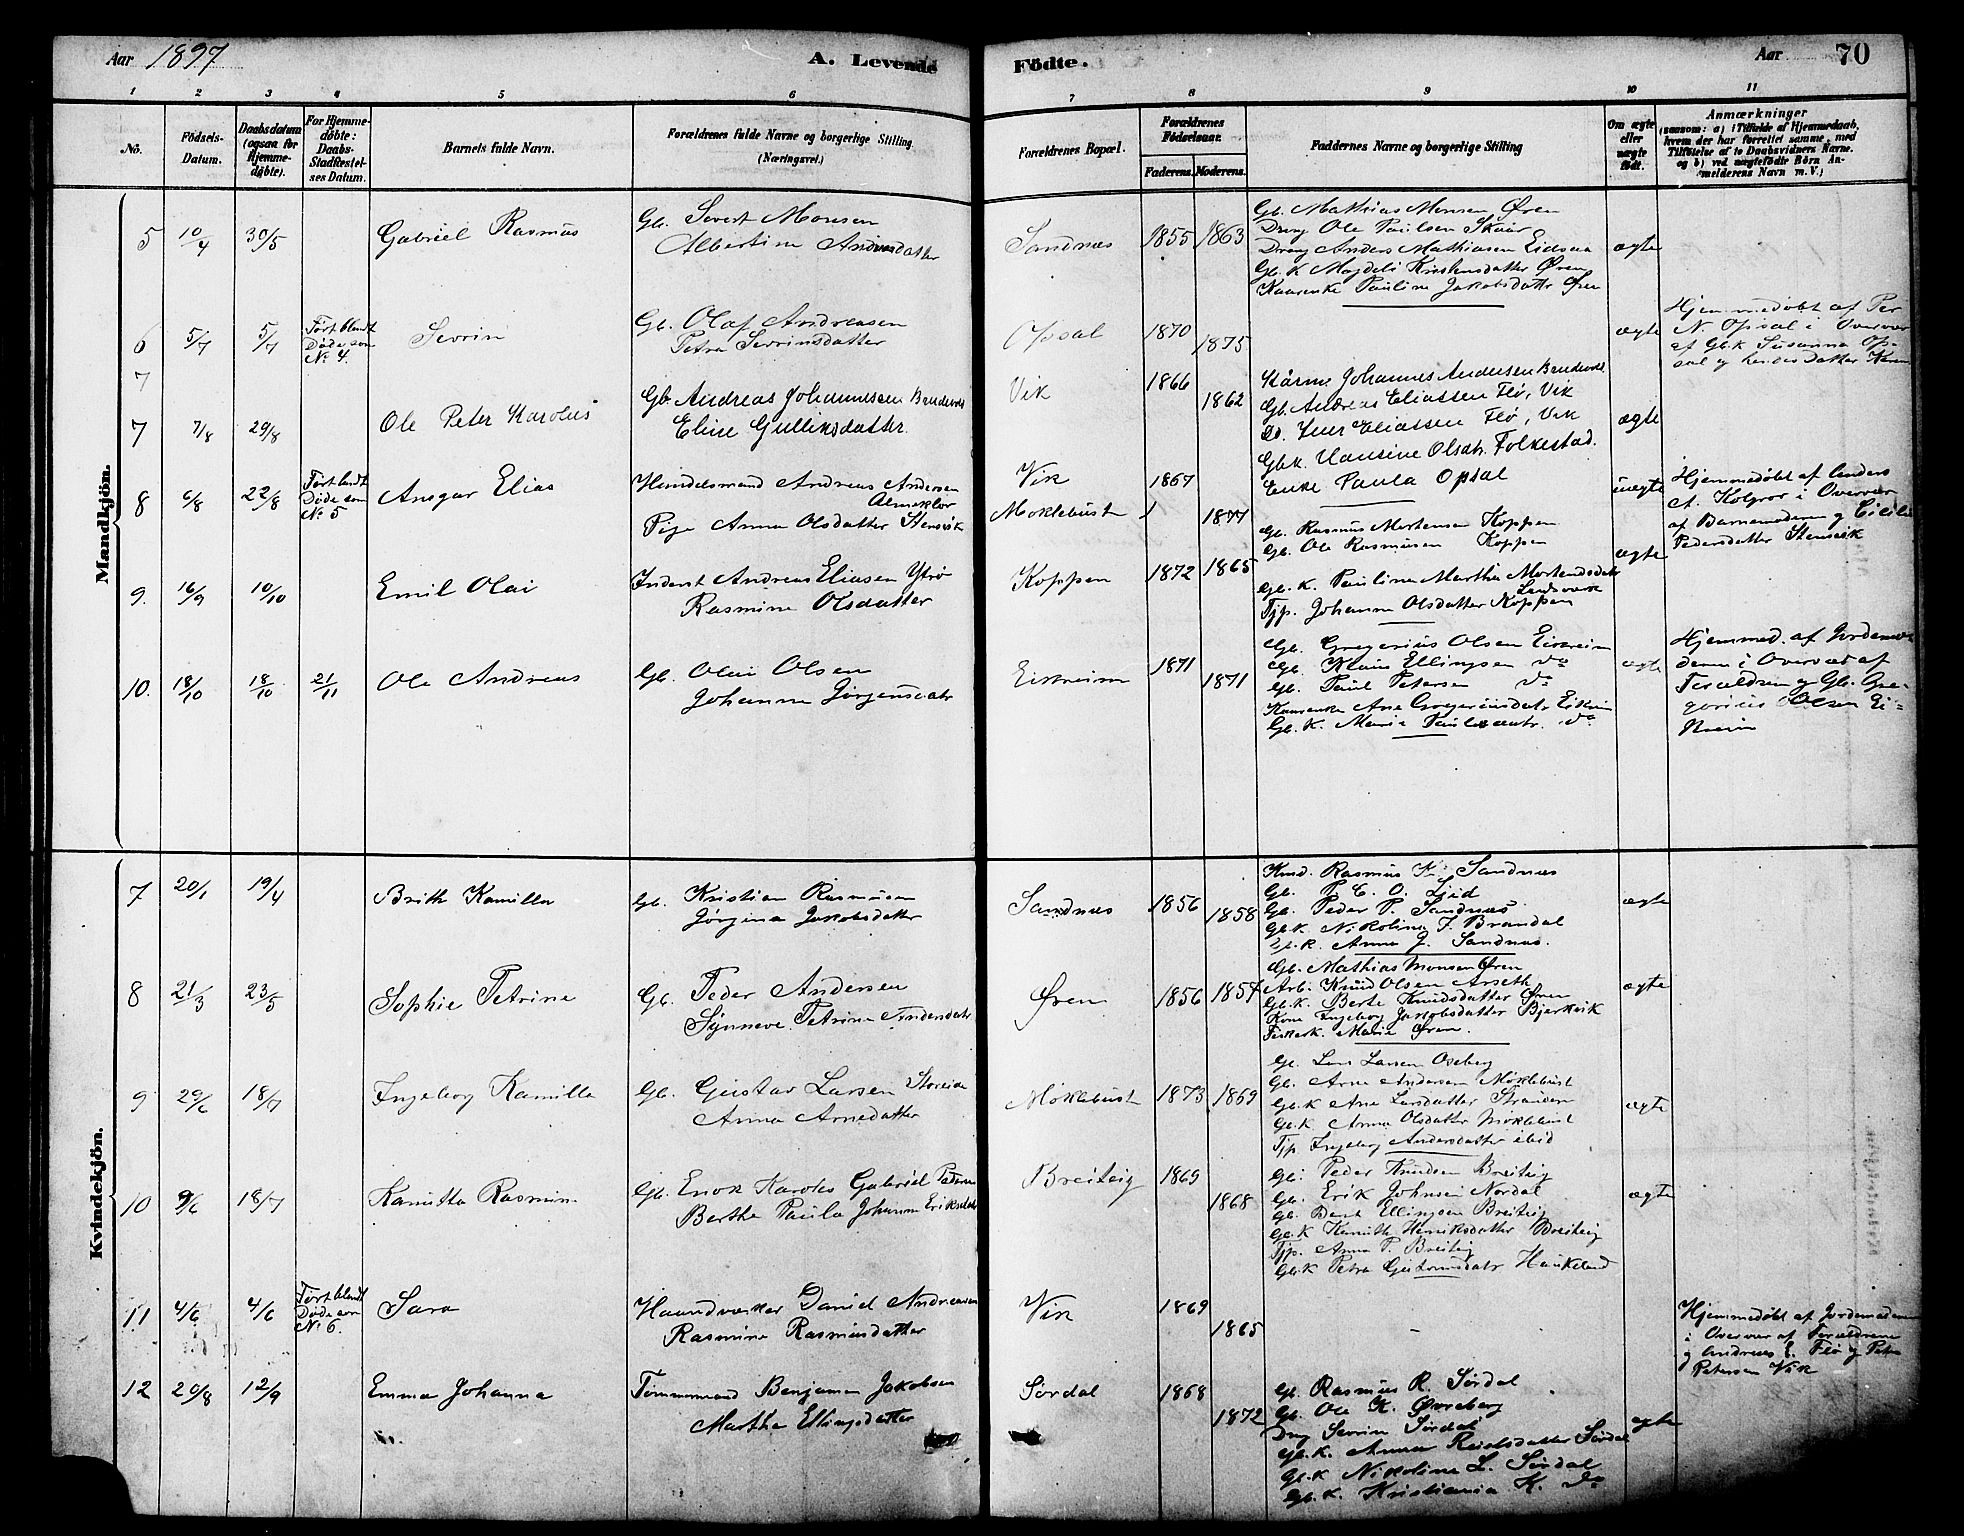 Aar 1897
A. Levende Födte.
Aar 70
1 2 3 4 5 6 7 8 9 10 11
No.
Födsels-Datum.
Daabsdatum (ogsaa for Hjemme-döbte).
For Hjemme-döbte: Daabs-Stadfæstel-ses Datum.
Barnets fulde Navn.
Forældrenes fulde Navne og borgerlige Stilling (Næringsvei.)
Forældrenes Bopæl.
Forældrenes Födselsaar.
Faderens. Moderens.
Faddernes Navne og borgerlige Stilling
Om ægte eller uægte födt.
Anmærkninger
(saasom: a) i Tilfælde af Hjemmedaab,
hvem der har forrettet samme, med
Tilföielse af to Daabsvidners Navne,
og b) ved uægtefödte Börn An-
melderens Navn m. V.)
Mandkjön.
5 10/4 30/5 Gabriel Rasmus
Gb. Sivert Monsen
Albertine Andersdatter
Sandnæs 1855 1863
Gb. Mathias Monsen Øren
Dreng Ole Paulsen Skaar
Dreng Anders Mathiasen Eidsaa
Gb.k. Magdeli Kristensdatter Øren
Kaarenke Pauline Jakobsdattr Øren
ægte
6 5/7 5/7 Ført blandt Døde som No 4.
Sevrin
Gb. Olaf Andreasen
Petra Sevrinsdatter
Opsal 1870 1875
ægte
Hjemmedøbt af Per
N. Opsal i Overvær
af Gbk Susanna Op-
sal og hendes datter Karen
7
7 7/8 29/8 Ole Peter Karolus
Gb. Andreas Johannesen Brudevol
Eline Gulliksdatter.
Vik 1866 1862
Kårm. Johannes Andersen Brudevol
Gb. Andreas Eliassen Flø, Vik
D. Iver Eliassen Flø, Vik
Gbk. Hansine Olsdtr. Folkestad.
Enke Paula Opsal
ægte
8 6/8 22/8 Ført blandt Døde som No 5
Ansgar Elias
Handelsmand Andreas Andersen Almeklov
Pige Anna Olsdatter Stensvik
Vik
Moklebust 1867 1877
uægte
Hjemmedøbt af Anders
A. Kolgrov i Overvær
af Barnemoderen og Cicilie
Pedersdatter Stensvik
9. 16/9 10/10 Emil Olai
Inderst Andreas Eliasen Ytrø
Rasmine Olsdatter
Koppen 1872 1865
Gb. Rasmus Mortensen Koppen
Gb. Ole Rasmusen Koppen
Gb.k. Pauline Martha Mortensdatr
Tjp. Johanne Olsdatter Koppen
ægte
10. 18/10 18/10 21/11 Ole Andreas
Gb. Olai Olsen
Johanna Jørgensdatr
Eikreim 1871 1871
Gb. Gregorius Olsen Eikreim
Gb. Klaus Ellingsen do
Gb. Paul Petersen do
Kaarenke Ane Gregoriusdatr Eikreim
Gb.K. Maria Paulsdatr. do
ægte
Hjemmed. af Jordemo-
deren i Overvær af
Forældren og Gb. Gre-
gorius Olsen Ei-
kreim
Kvindekjön.
7 20/1 19/4 Brith Kamilla
Gb. Kristian Rasmusen
Jørgina Jakobsdatter
Sandnæs 1856 1858
Kmd. Rasmus K. Sandnæs
Gb. P. C. O. Ljød
Gb. Peder P. Sandnæs
Gb.k. Nikoline J. Brandal
Gb.k. Anna J. Sandnæs.
ægte
8 21/3 23/5 Sophie Petrine
Gb. Peder Andersen
Synneve Petrine Andersdatr
Øren 1856 1857
Gb. Mathias Monsen Øren
Arb. Knud Olsen Arseth
Gb.k. Berte Knudsdatter Øren
Kone Ingeborg Jakobsdatter Bjerkvik
Fiskerk. Maria Øren.
ægte
9 29/6 18/7 Ingeborg Kamilla
Gb. Gustav Larsen Storeide
Anna Arnedatter
Møklebust 1873 1869
Gb. Lars Larsen Oseberg
Gb. Arne Andersen Møklebust
Gb.K Ane Larsdatter
Gb.K. Anna Olsdatter Møklebust
Tjp. Ingeborg Andersdatter ibid
ægte
10 9/6 18/7 Kanutta Rasmine
Gb. Enok Karolus Gabriel Pedersen
Berthe Paula Johanne Eriksdatr
Breiteig 1869 1868
Gb. Peder Knudsen Breiteig
Gb. Erik Johnsen Nordal
Gb. Bent Ellingsen Breiteig
Gb.K Kanutte Henriksdatter Breiteig
Tjp. Anna P. Breiteig
Gb.K Petra Guttormsdatr Haukeland
ægte
11 4/6 4/6 Ført blandt Døde som No 6.
Sara
Haandværker Daniel Andreasen
Rasmine Rasmusdatter
Vik 1869 1865
Hjemmedøbt af Jordemoderen
i Overvær af Forældrene
og Andreas E. Flø og Peter
Petersen Vik
12 20/8 12/9 Emma Johanna
Tømmermand Benjamin Jakobsen
Martha Ellingsdatter
Sørdal 1868 1872
Gb. Rasmus R. Sørdal
Gb. Ole K. Øvreberg
Dreng Sevrin Sørdal
Gb.k. Anna Sørdal
Gb.k Nikoline L. Sørdal
Gb.k. Kristianna K. do
ægte